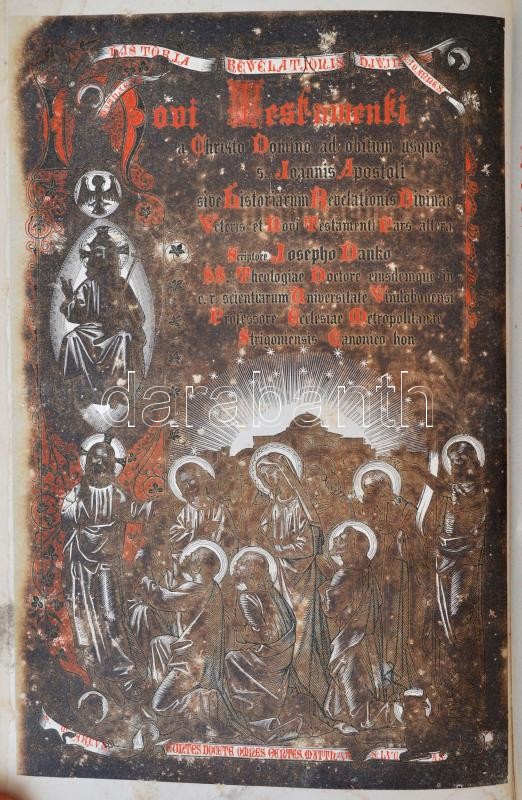 HISTORIA REVELATIONIS DIVIN
Novi Testamenti
a Christo Domino ad obitum usque
s. Joannis Apostoli
sive Historiarum Revelationis Divinae
Veteris et Novi Testamenti Pars altera
Scriptore Josepho Danko
SS. Theologiae Doctore ejusdemque in
c. r. scientiarum Universitate Vindobonensi
Professore Ecclesiae Metropolitanae
Strigoniensis Canonico hon
darabanth
EUNTES DOCETE OMNES GENTES MATTH
S LUC